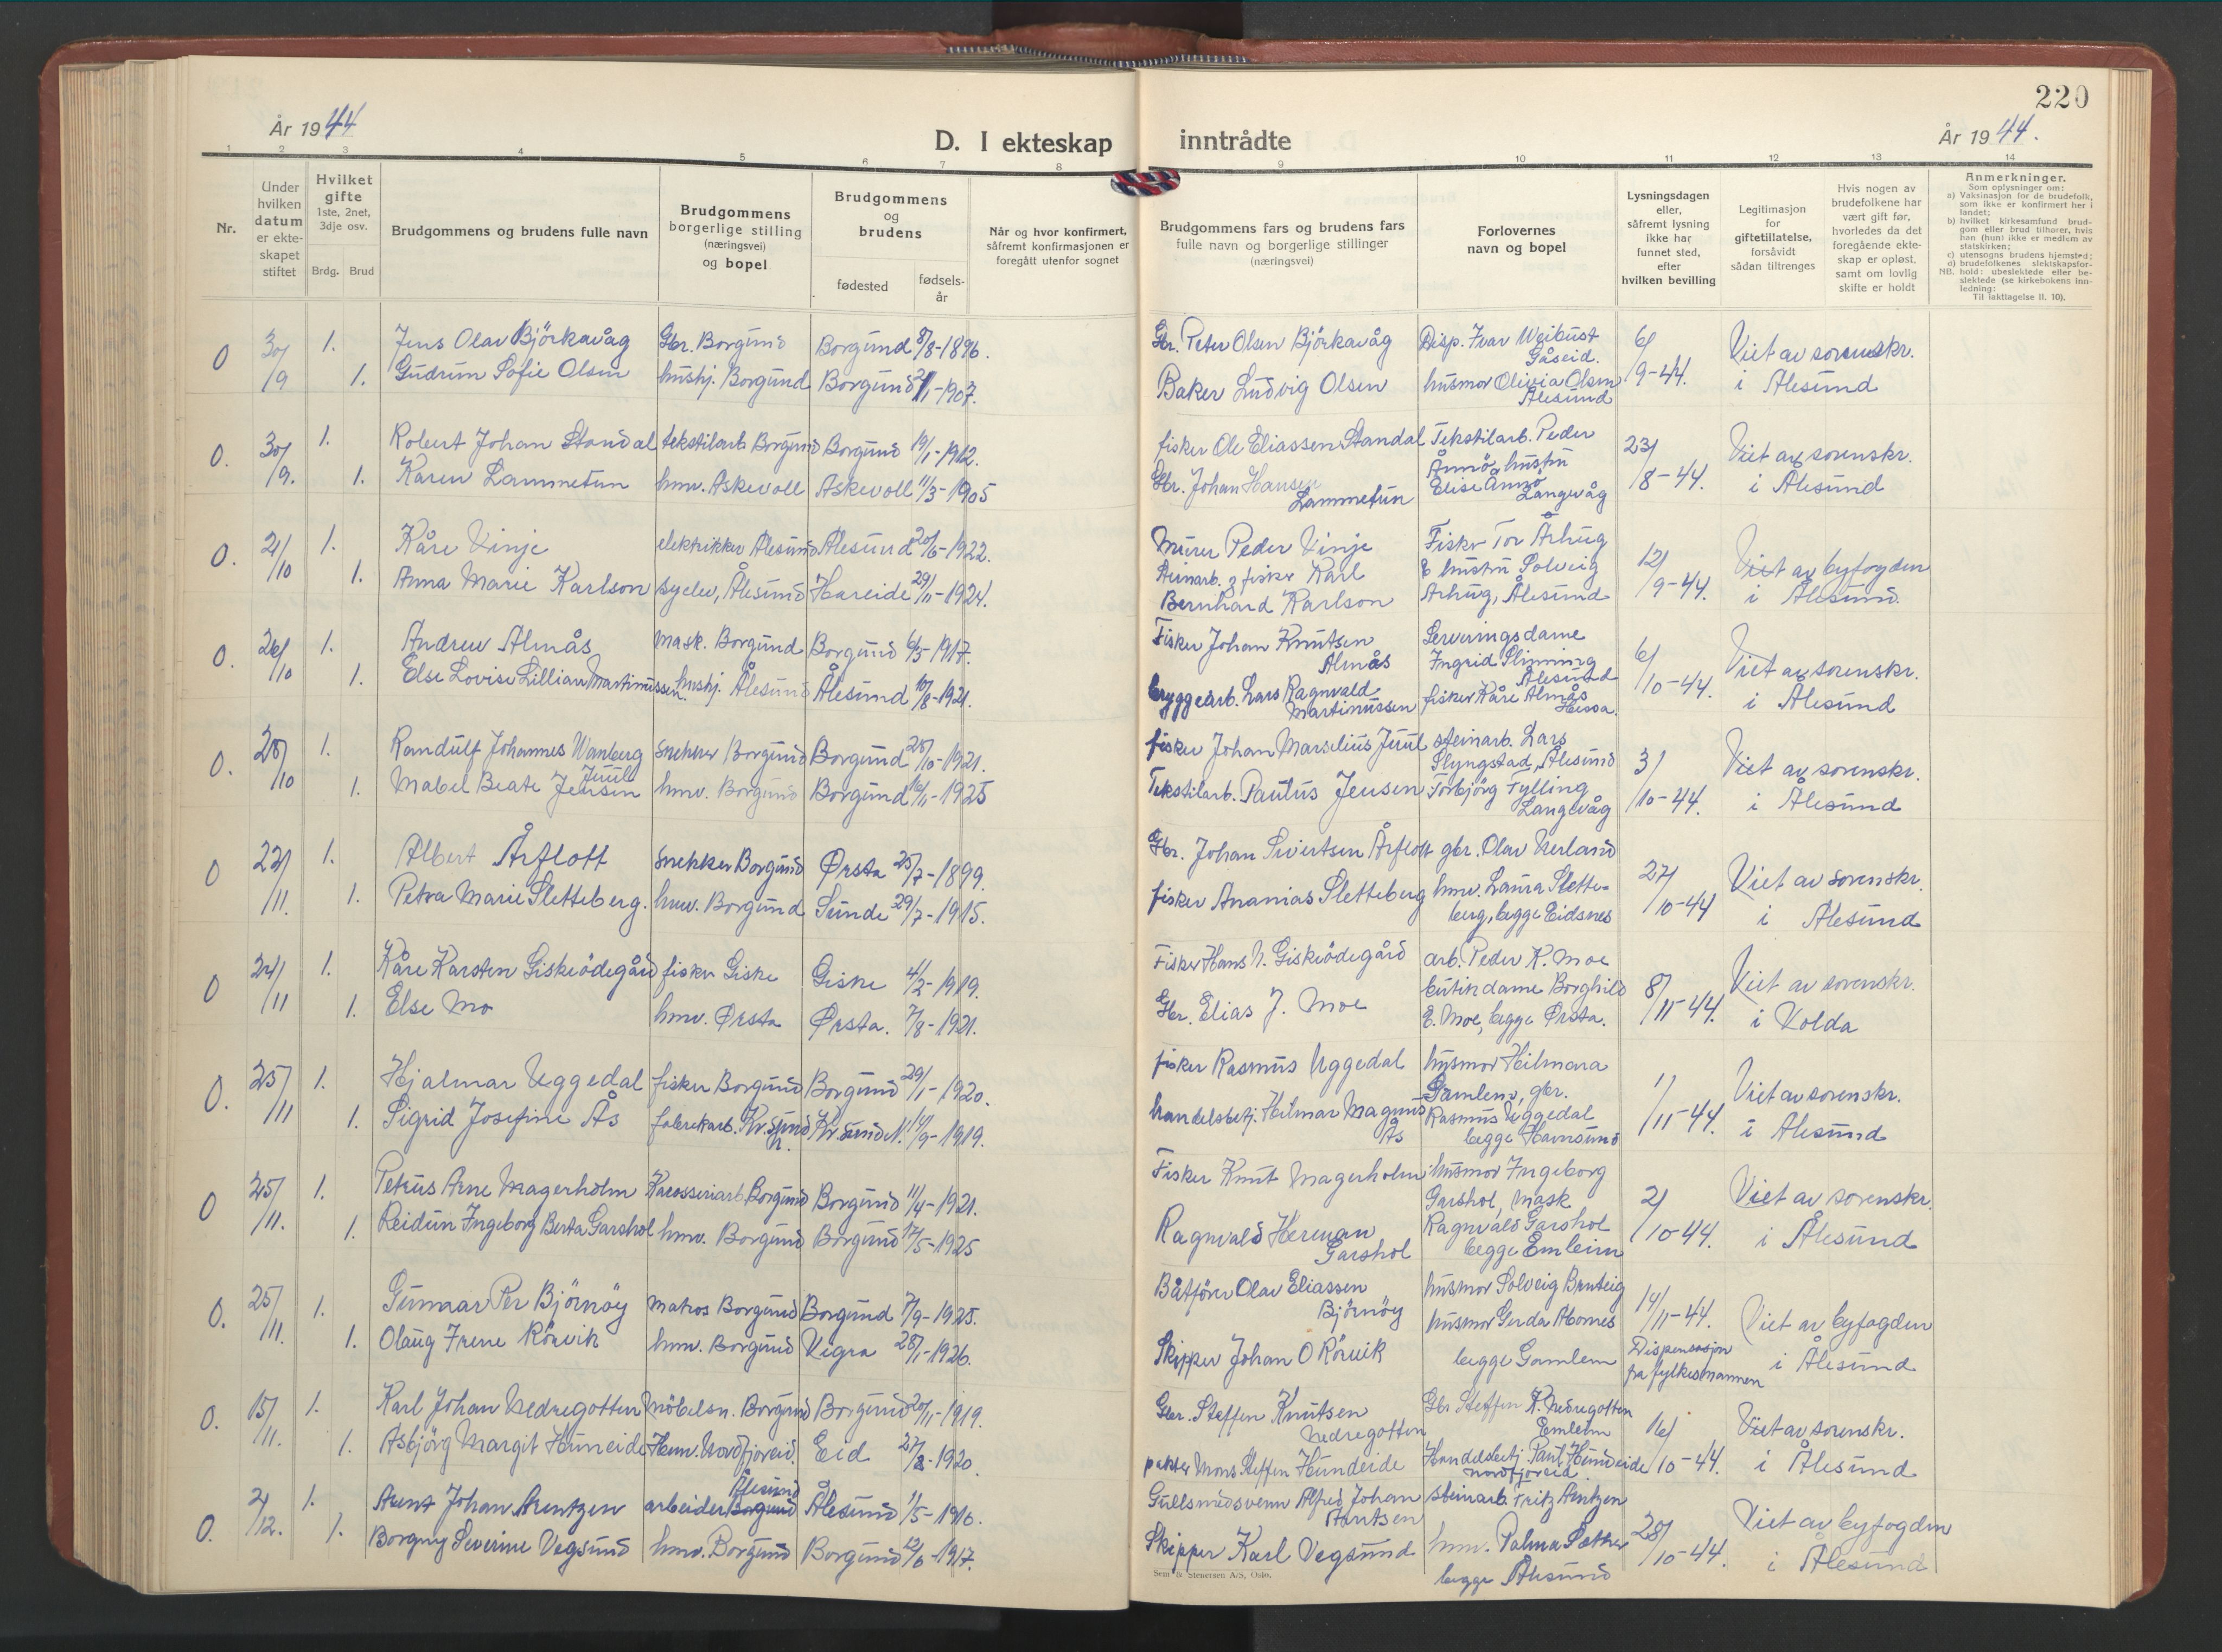 220
År 1944
D. I ekteskap inntrådte
År 1944.
1 2 3 4 5 6 7 8 9 10 11 12 13 14
Nr.
Under hvilken datum er ekteskapet stiftet
Hvilket gifte
1ste, 2net, 3dje osv.
Brdg. Brud
Brudgommens og brudens fulle navn
Brudgommens borgerlige stilling (næringsvei) og bopel
Brudgommens og brudens
fødested
fødselsår
Når og hvor konfirmert, såfremt konfirmasjonen er foregått utenfor sognet
Brudgommens fars og brudens fars fulle navn og borgerlige stillinger (næringsvei)
Forlovernes navn og bopel
Lysningsdagen eller, såfremt lysning ikke har funnet sted, efter hvilken bevilling
Legitimasjon for giftetillatelse, forsåvidt sådan tiltrenges
Hvis nogen av brudefolkene har vært gift før, hvorledes da det foregående ekteskap er opløst, samt om lovlig skifte er holdt
Anmerkninger.
Som oplysninger om:
a) Vaksinasjon for de brudefolk, som ikke er konfirmert her i landet;
b) hvilket kirkesamfund brudgom eller brud tilhører, hvis han (hun) ikke er medlem av statskirken;
c) utensogns brudens hjemsted;
d) brudefolkenes slektskapsforhold: ubeslektede eller beslektede (se kirkebokens innledning:
NB.
Til iakttagelse II. 10).
O 30/9 1. Jens Olav Björkavåg Gbr. Borgund Borgund 8/8-1896. Gbr. Peter Olsen Björkavåg Disp. Ivar Weibust Gåseid. 6/9-44. Viet av sorenskr.
1. Gudrun Sofie Olsen hushj. Borgund Borgund 2/1-1907. Baker Ludvig Olsen husmor Olivia Olsen Ålesund i Ålesund
O. 30/9. 1. Robert Johan Standal tekstilarb. Borgund Borgund 19/1-1912. fisker Ole Eliassen Standal Tekstilarb. Peder Ånnö, hustru 23/8-44. Viet av sorenskr.
1. Karen Lammetun hmv. Askevoll Askevoll 11/3-1905 Gbr. Johan Hansen Lammetun Elise Ånnö Langevåg i Ålesund
O. 21/10 1. Kåre Vinje elektriker Ålesund Ålesund 20/6-1922. Murer Peder Vinje Fisker Tor Århug 12/9-44. Viet av byfogden
1. Anna Marie Karlson syelev, Ålesund Hareide 29/11-1924. Steinarb. & fisker Karl Bernhard Karlson & hustru Solveig Århug, Ålesund i Ålesund.
O. 26/10 1. Andrew Almås mask. Borgund Borgund 6/5-1917. Fisker Johan Knutsen Almås Serveringsdame Ingrid Slinning Ålesund 6/10-44. Viet av sorenskr.
1. Else Lovise Lillian Martinussen hushj. Ålesund Ålesund 10/8-1921. bryggearb. Lars Ragnvald Martinussen fisker Kåre Almås Hessa. i Ålesund
O. 28/10 1. Randulf Johannes Wanberg Juul snekker Borgund Borgund 28/10-1921. fisker Johan Marselius Juul steinarb. Lars Slyngstad, Ålesund 3/10-44. Viet av sorenskr.
1. Mabel Beate Jensen hmv. Borgund Borgund 16/1-1925 Tekstilarb. Paulus Jensen Torbjörg Fylling Langevåg i Ålesund
O 22/11. 1. Albert Årflott snekker Borgund Ørsta 25/7-1899. Gbr. Johan Sivertsen Årflott gbr. Olav Uerland 27/10-44 Viet av sorenskr.
1. Petra Marie Sletteberg. hmv. Borgund Sunde 29/7-1915. fisker Ananias Sletteberg hmv. Laura Sletteberg, begge Eidsnes i Ålesund
O 24/11 1. Kåre Karsten Giskeödegård fisker Giske Giske 4/2-1919. Fisker Hans N. Giskeödegård arb. Peder K. Moe 8/11-44. Viet av sorenskr.
1. Else Mo hmv. Ørsta Ørsta. 7/8-1921. Gbr. Elias J. Moe butikdame Borghild E. Moe, begge Ørsta. i Volda
O. 25/11 1. Hjalmar Uggedal fisker Borgund Borgund 29/1-1920. fisker Rasmus Uggedal husmor Hilmara Gamlem, gbr. 1/11-44. Viet av sorenskr.
1. Sigrid Josefine Ås fabrikarb. Kr.sund N. Kr.sund N. 14/9-1919. handelsbetj. Hilmar Magnus Ås Rasmus Uggedal begge Hamsund i Ålesund
O 25/11. 1. Petrus Arne Magerholm Karosseriarb. Borgund Borgund 11/4-1921. Fisker Knut Magerholm husmor Ingeborg Garshol, mask 2/10-44. Viet av sorenskr.
1. Reidun Ingeborg Berta Garshol hmv. Borgund Borgund 17/5-1925 Ragnvald Herman Garshol Ragnvald Garshol begge Emleim i Ålesund
O. 25/11. 1. Gunnar Per Björnöy matros Borgund Borgund 7/9-1925. Båtförer Olav Eliassen Björnöy husmor Solveig Bruteig 14/11-44. Viet av byfogden
1. Olaug Irene Rörvik hmv. Borgund Vigra 28/1-1926. Skipper Johan O Rörvik husmor Gerda Alnes begge Gamlem Dispensasjon fra fylkesmannen i Ålesund
O. 15/11. 1. Karl Johan Nedregotten möbelsn. Borgund Borgund 20/11-1919. Gbr. Steffen Knutsen Nedregotten Gbr Steffen K. Nedregotten Emleim 16/10-44. Viet av sorenskr.
1. Asbjörg Margit Hundeide Hmv. Nordfjoreid. Eid 27/8-1920. pakter Mons Steffen Hundeide Handelsbetj. Paul Hundeide Nordfjoreid i Ålesund
O. 2/12. 1. Arent Johan Arentzen arbeider Borgund Ålesund Ålesund 1/5-1910. Gullsmedsvenn Alfred Johan Arntsen steinarb. Fritz Arntzen 28/10-44. Viet av byfogden
1. Borgny Severine Vegsund hmv. Borgund Borgund 12/6-1917. Skipper Karl Vegsund hmv. Palma Sætre begge Ålesund i Ålesund
Sem & Stenersen A/S, Oslo.